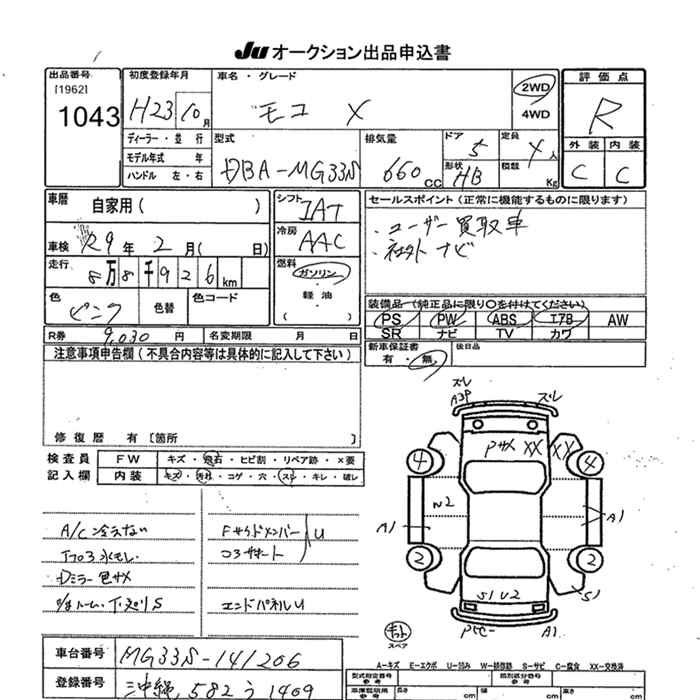 JU オークション出品申込書
出品番号
[1962]
1043
初度登録年月
H23 10月
車名・グレード
モコ X
2WD
4WD
評価点
R
外装 内装
C C
ディーラー・並行
モデル年式 年
ハンドル 左・右
型式
DBA-MG33S
排気量
660 cc
ドア
5
形状
HB
定員
4人
積載
Kg
車歴
自家用( )
車検 29年 2月( 日)
走行
8万8千926km
色
ピンク
色替
色コード
シフト
IAT
冷房
AAC
燃料
ガソリン
軽油
( )
セールスポイント(正常に機能するものに限ります)
・ユーザー買取車
・社外ナビ
装備品(純正品に限り○を付けてください)
PS PW ABS エアB AW
SR ナビ TV カワ
新車保証書
有・無
後日品
R券 9,030円
名変期限 月 日
注意事項申告欄(不具合内容等は具体的に記入して下さい)
修復歴 有〔箇所 〕
検査員
記入欄
FW キズ・飛石・ヒビ割・リペア跡・×要
内装 キズ・汚れ・コゲ・穴・スレ・キレ・破レ
A/C冷えない
Dミラー色サメ
Fサイドメンバー
コアサポート
U
エンドパネルU
ズレ
A3P
ズレ
Pサメ XX XX
4
4
N2
A1
A1
2
2
S1 U2
S1
A1
スペア
車台番号 MG33S-141206
登録番号 沖縄 582 う 1409
A-キズ E-エクボ U-凹み W-補修跡 S-サビ C-腐食 XX-交換済
型式指定番号
参考
類別区分番号
参考
長さ
cm
幅
cm
高さ
cm